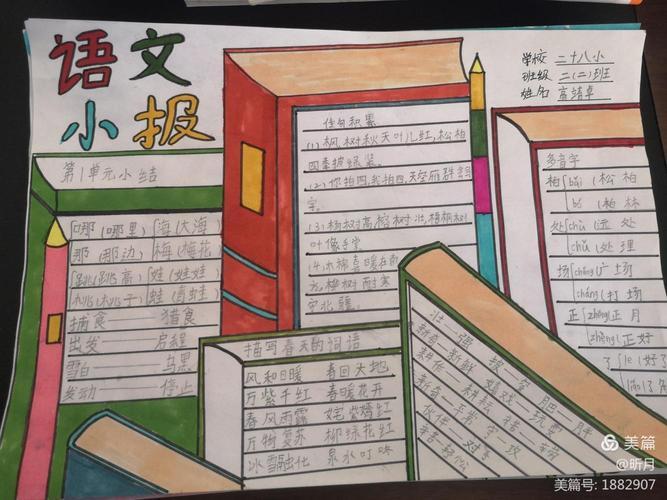 语文
小报
学校 二十八小
班级 二(二)班
姓名 高靖卓
第1单元小结
哪(哪里) 海(大海)
那(那边) 梅(梅花)
跳(跳高) 娃(娃娃)
桃(桃子) 蛙(青蛙)
捕食 猎食
出发 启程
雪白 乌黑
发动 停止
佳句积累
(1)枫树秋天叶儿红,松柏
四季披绿装。
(2)你拍四,我拍四,天空雁群会写
字。
(3)杨树高,榕树壮,梧桐树
叶像手掌
(4)木棉喜暖在南
方,桦树耐寒
守北疆。
描写春天的词语
风和日暖 春回大地
万紫千红 春暖花开
春风雨露 姹紫嫣红
万物复苏 柳绿花红
冰雪融化 泉水叮咚
壮—强
新奇 新鲜
拔—登
嬉戏 玩耍
胆 胖
伙伴
辛苦—轻松
多音字
柏 bǎi 松柏
bó 柏林
处 chù 远处
chǔ 处理
场 chǎng 广场
cháng 打场
正 zhēng 正月
zhèng 正好
了 le 好了
liǎo
美篇
@昕月
美篇号: 1882907